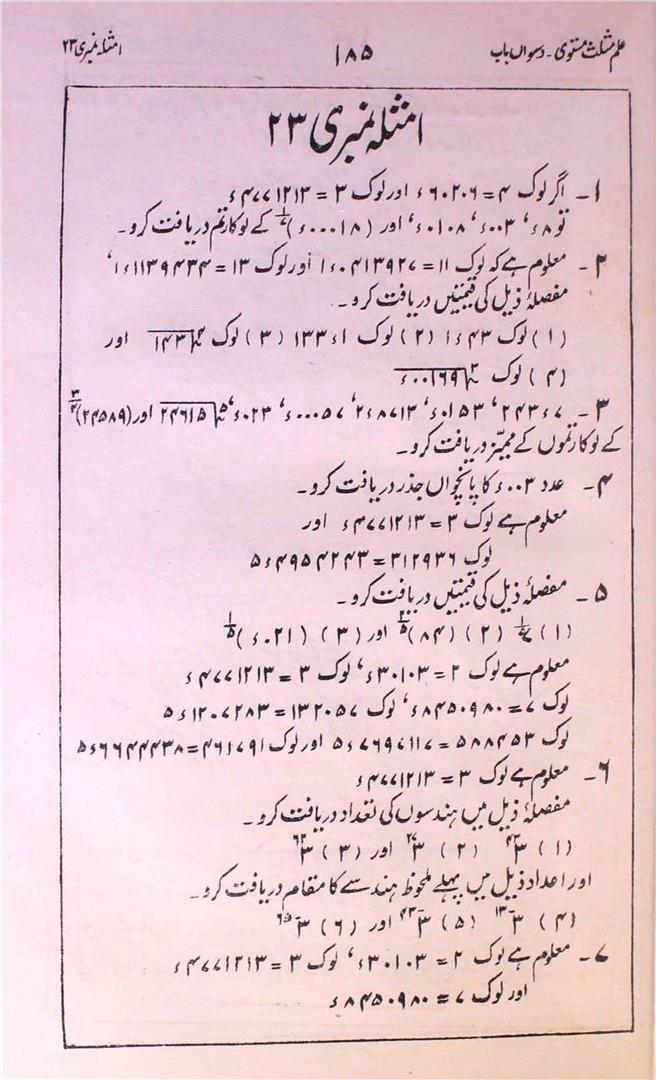 علم مثلث مستوی۔ دسواں باب ۱۸۵ امثلہ نمبری ۲۳
امثلہ نمبری ۲۳
۱۔ اگر لوک ۴ = ۶۰۲۰۶ء اور لوک ۳ = ۴۷۷۱۲۱۳ء
تو ۸ء، ۰۰۳ء، ۰۱۰۸ء، اور (۰۰۰۱۸ء)^{۱/۷} کے لوکارتم دریافت کرو۔
۲۔ معلوم ہے کہ لوک ۱۱ = ۱ء۰۴۱۳۹۲۷ اور لوک ۱۳ = ۱ء۱۱۳۹۴۳۴،
مفصلۂ ذیل کی قیمتیں دریافت کرو۔
(۱) لوک ۱ء۴۳ (۲) لوک ۱۳۳ء۱ (۳) لوک ∜۱۴۳ اور
(۴) لوک ∛۰۰۱۶۹ء
۳۔ ۲۴۳ء۷، ۰۱۵۳ء، ۲ء۸۷۱۳، ۰۰۰۵۷ء، ۰۲۳ء، ⁵√۲۴۶۱۵ اور (۲۴۵۸۹)^{۳/۴}
کے لوکارتموں کے ممیّز دریافت کرو۔
۴۔ عدد ۰۰۳ء کا پانچواں جذر دریافت کرو۔
معلوم ہے لوک ۳ = ۴۷۷۱۲۱۳ء اور
لوک ۳۱۲۹۳۶ = ۵ء۴۹۵۴۲۴۳
۵۔ مفصلۂ ذیل کی قیمتیں دریافت کرو۔
(۱) ۷^{۱/۷} (۲) (۸۴)^{۲/۵} اور (۳) (۰۲۱ء)^{۱/۵}
معلوم ہے لوک ۲ = ۳۰۱۰۳ء، لوک ۳ = ۴۷۷۱۲۱۳ء
لوک ۷ = ۸۴۵۰۹۸۰ء، لوک ۱۳۲۰۵۷ = ۵ء۱۲۰۷۲۸۳
لوک ۵۸۸۴۵۳ = ۵ء۷۶۹۷۱۱۷ اور لوک ۴۶۱۷۹۱ = ۵ء۶۶۴۴۴۳۸
۶۔ معلوم ہے لوک ۳ = ۴۷۷۱۲۱۳ء
مفصلۂ ذیل میں ہندسوں کی تعداد دریافت کرو۔
(۱) ۳^{۴۳} (۲) ۳^{۲۷} اور (۳) ۳^{۶۲}
اور اعداد ذیل میں پہلے ملحوظ ہندسے کا مقام دریافت کرو۔
(۴) ۳^{-۱۳} (۵) ۳^{-۴۳} اور (۶) ۳^{-۶۵}
۷۔ معلوم ہے لوک ۲ = ۳۰۱۰۳ء، لوک ۳ = ۴۷۷۱۲۱۳ء
اور لوک ۷ = ۸۴۵۰۹۸۰ء